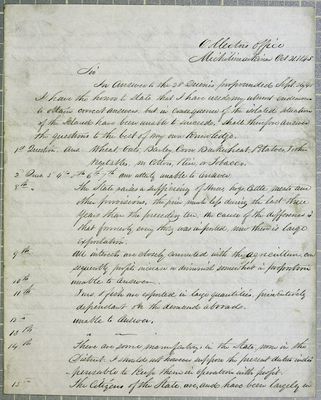 Collectors Office
Michilimackinac Oct 21 1845
Sir
In Answer to the Queries propounded Sept
I have the honor to State that I have used my utmost endeavors
to obtain correct answers, but in consequence of the isolated situation
of the Island have been unable to succeed, I shall therefore answer
the questions to the best of my own knowledge.
1st Question Ans Wheat Oats, Barley Corn Buckwheat, Potatoes, & other
Vegetables, no Cotton, Rice, or Tobacco.
2 Ques 3d 4th 5th 6th 7th am utterly unable to answer.
8th The State raises a sufficiency of these hogs Cattle, meats and
other provisions, the price much less during the last three
Years than the preceding ten, the cause of the difference is
that formerly every thing was imported, now there is large
exportation.
9th All interests are closely connected with the agriculture, con
sequently profits increase or diminish somewhat in proportion
10th unable to Answer.
11th Furs & fish are exported in large quantities,
dependant on the demands abroad.
12th unable to Answer.
13th
14th There are some manufactories in the State, none in this
District. I should not however suppose the present duties indis
pensable to keep them in operation with profit.
15th The Citizens of the State are and have been largely in